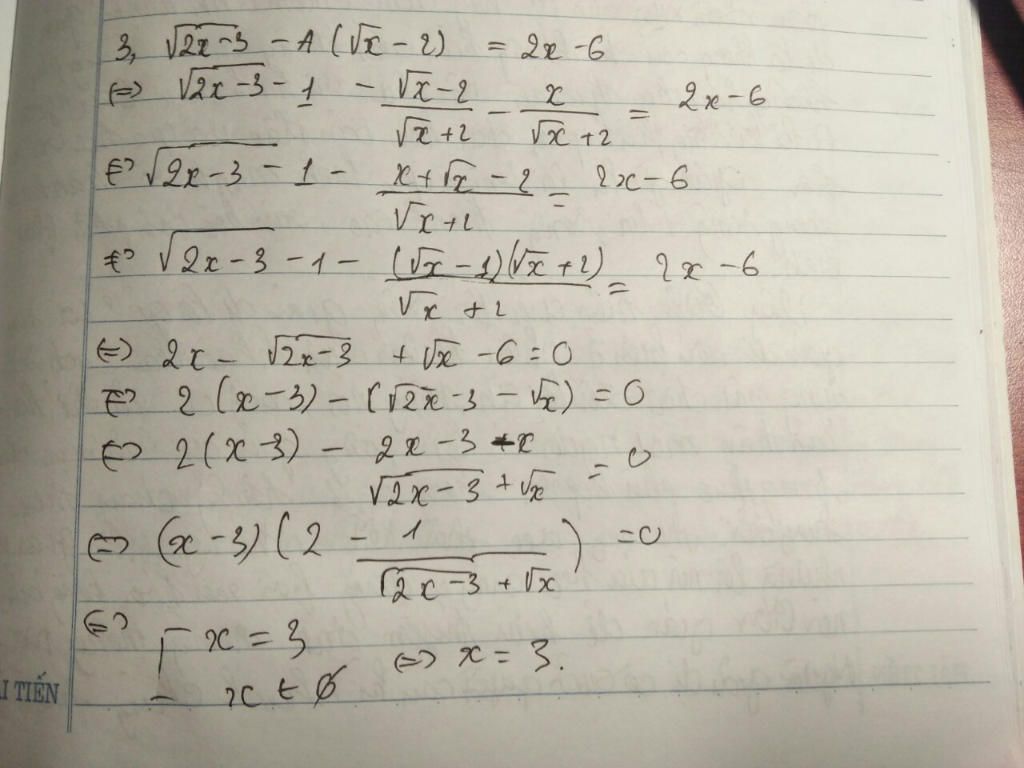 3, √(2x-3) - A (√x - 2) = 2x - 6
(=) √(2x-3) - 1 - (√x - 2)/(√x + 2) - x/(√x + 2) = 2x - 6
(=) √(2x-3) - 1 - (x + √x - 2)/(√x + 2) = 2x - 6
(=) √(2x-3) - 1 - ((√x - 1)(√x + 2))/(√x + 2) = 2x - 6
(=) 2x - √(2x-3) + √x - 6 = 0
(=) 2 (x-3) - (√(2x-3) - √x) = 0
(=) 2(x-3) - (2x - 3 - x)/(√(2x-3) + √x) = 0
(=) (x-3) (2 - 1/(√(2x-3) + √x)) = 0
(=) [ x = 3
x ∈ ∅ (=) x = 3.
ẢI TIẾN